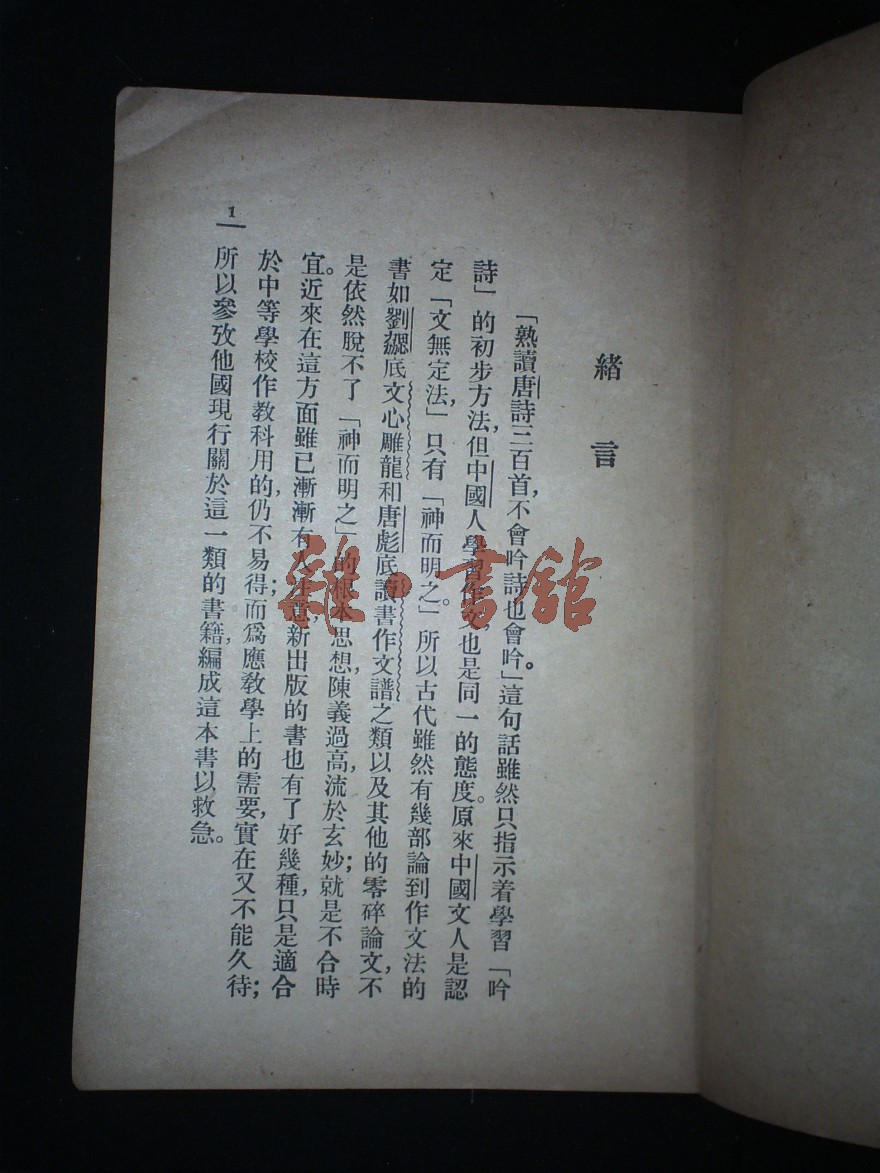 緒言
「熟讀唐詩三百首，不會吟詩也會吟。」這句話雖然只指示着學習「吟
詩」的初步方法，但中國人學習作文，也是同一的態度。原來中國文人是認
定「文無定法，」只有「神而明之。」所以古代雖然有幾部論到作文法的
書如劉勰底文心雕龍和唐彪底讀書作文譜之類以及其他的零碎論文，不
是依然脫不了「神而明之」的根本思想，陳義過高，流於玄妙；就是不合時
宜。近來在這方面雖已漸漸有人注意，新出版的書也有了好幾種，只是適合
於中等學校作教科用的，仍不易得；而爲應教學上的需要，實在又不能久待；
所以參攷他國現行關於這一類的書籍，編成這本書以救急。
1
雜·書館